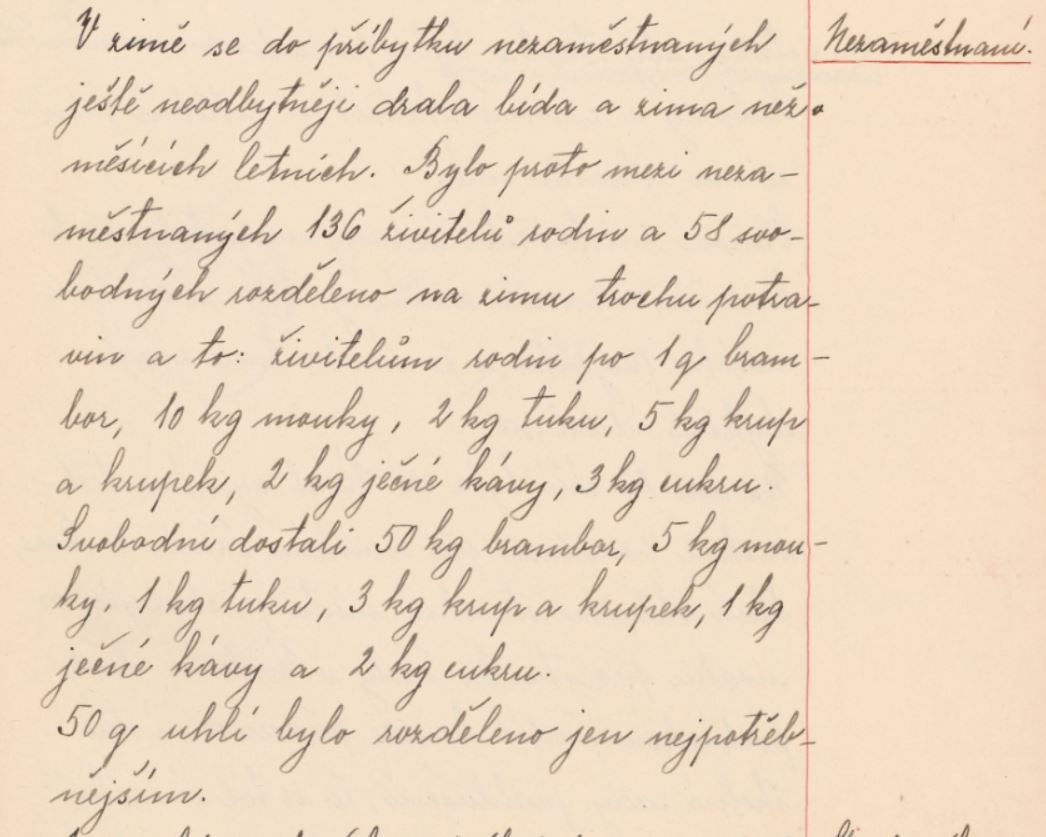 V zimě se do příbytku nezaměstnaných
Nezaměstnaní.
ještě neodbytněji drala bída a zima než v
měsících letních. Bylo proto mezi neza-
městnaných 136 živitelů rodin a 58 svo-
bodných rozděleno na zimu trochu potra-
vin a to: živitelům rodin po 1 q bram-
bor, 10 kg mouky, 2 kg tuku, 5 kg krup
a krupek, 2 kg ječné kávy, 3 kg cukru.
Svobodní dostali 50 kg brambor, 5 kg mou-
ky, 1 kg tuku, 3 kg krup a krupek, 1 kg
ječné kávy a 2 kg cukru.
50 q uhlí bylo rozděleno jen nejpotřeb-
nějším.